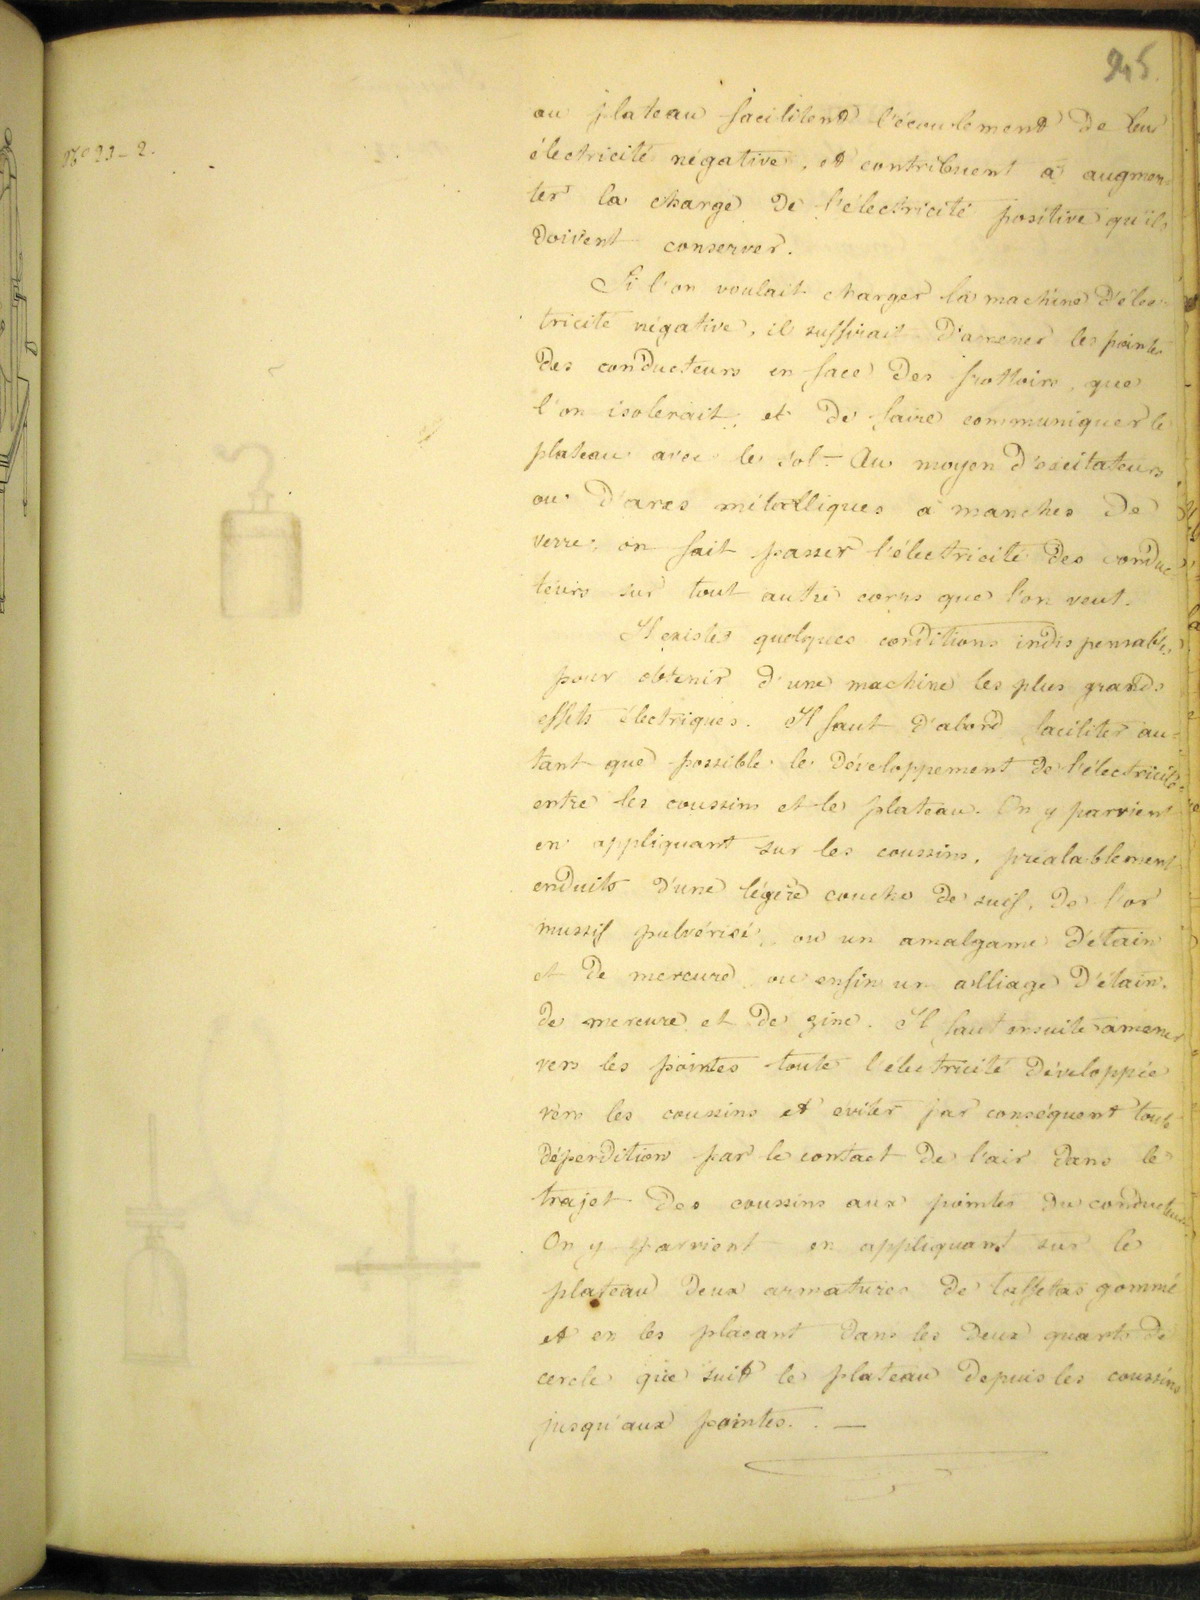 245.
No 23-2.
au plateau facilitent l'écoulement de leur
électricité négative, et contribuent à augmen-
ter la charge de l'électricité positive qu'ils
doivent conserver.
Si l'on voulait charger la machine d'élec-
tricité négative, il suffirait d'amener les pointes
des conducteurs en face des frottoirs, que
l'on isolerait, et de faire communiquer le
plateau avec le sol. - Au moyen d'excitateurs
ou d'arcs métalliques à manches de
verre, on fait passer l'électricité des conduc-
teurs sur tout autre corps que l'on veut.
Il existe quelques conditions indispensables
pour obtenir d'une machine les plus grands
effets électriques. Il faut d'abord faciliter au-
tant que possible le développement de l'électricité
entre les coussins et le plateau. On y parvient
en appliquant sur les coussins, préalablement
enduits d'une légère couche de suif, de l'or
mussif pulvérisé, ou un amalgame d'étain
et de mercure, ou enfin un alliage d'étain,
de mercure et de zinc. Il faut ensuite amener
vers les pointes toute l'électricité développée
vers les coussins et éviter par conséquent toute
déperdition par le contact de l'air dans le
trajet des coussins aux pointes du conducteur.
On y parvient en appliquant sur le
plateau deux armatures de taffetas gommé
et en les plaçant dans les deux quarts de
cercle que suit le plateau depuis les coussins
jusqu'aux pointes. . —